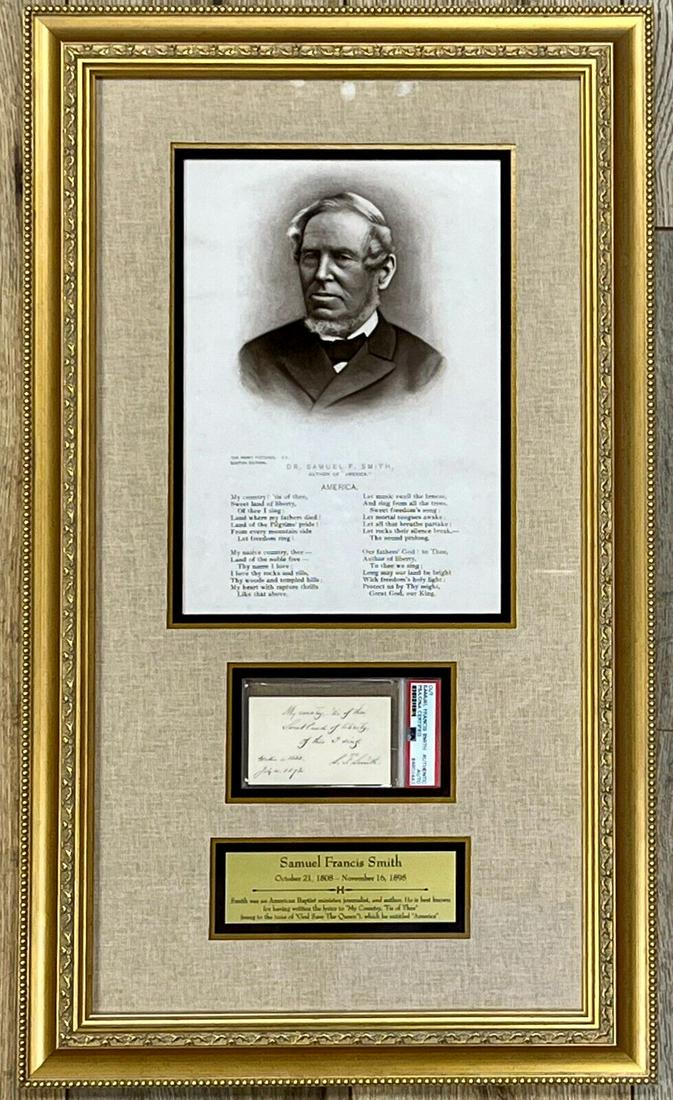 THE PERRY PICTURES.
BOSTON EDITION.
DR. SAMUEL F. SMITH,
AUTHOR OF "AMERICA."
AMERICA.
My country! 'tis of thee,
Sweet land of liberty,
Of thee I sing;
Land where my fathers died!
Land of the Pilgrims' pride!
From every mountain side
Let freedom ring!
My native country, thee—
Land of the noble free—
Thy name I love;
I love thy rocks and rills,
Thy woods and templed hills;
My heart with rapture thrills
Like that above.
Let music swell the breeze,
And ring from all the trees,
Sweet freedom's song;
Let mortal tongues awake;
Let all that breathe partake;
Let rocks their silence break,—
The sound prolong.
Our fathers' God! to Thee,
Author of liberty,
To thee we sing;
Long may our land be bright
With freedom's holy light;
Protect us by Thy might,
Great God, our King.
My country, 'tis of thee
Sweet land of liberty,
Of thee I sing
Written in 1832.
S. F. Smith.
July 11. 1892
CUT
SAMUEL FRANCIS SMITH
AUTHENTIC
AUTO
PSA/DNA CERTIFIED
Samuel Francis Smith
October 21, 1808 – November 16, 1895
Smith was an American Baptist minister, journalist, and author. He is best known
for having written the lyrics to "My Country, 'Tis of Thee"
(sung to the tune of "God Save The Queen"), which he entitled "America"